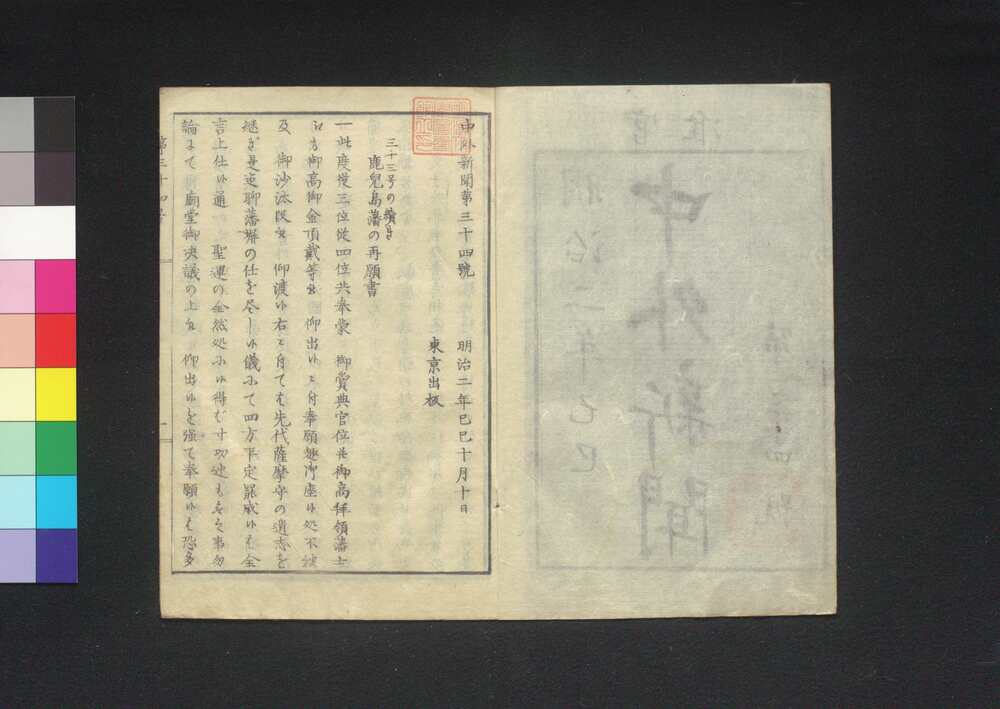 官
中外新聞
明治二年己巳
中外新聞第三十四號　明治二年己巳十月十日
東京出板
三十三号の續き
鹿児島藩の再願書
一此度従三位従四位共奉蒙　御賞典官位并御高拝領藩士
江も御高御金頂戴等被　仰出候ニ付奉願趣御座候処不被
及　御沙汰段被　仰渡候右ニ付ても先代薩摩守の遺志を
継ぎ是迄聊藩屏の仕を尽し候儀にて四方平定罷成候も全
言上仕候通　聖運の全然処に候得ば寸功迚も無之事勿
論にて　廟堂御決議の上被　仰出候を強て奉願候も恐多
第三十四号
一